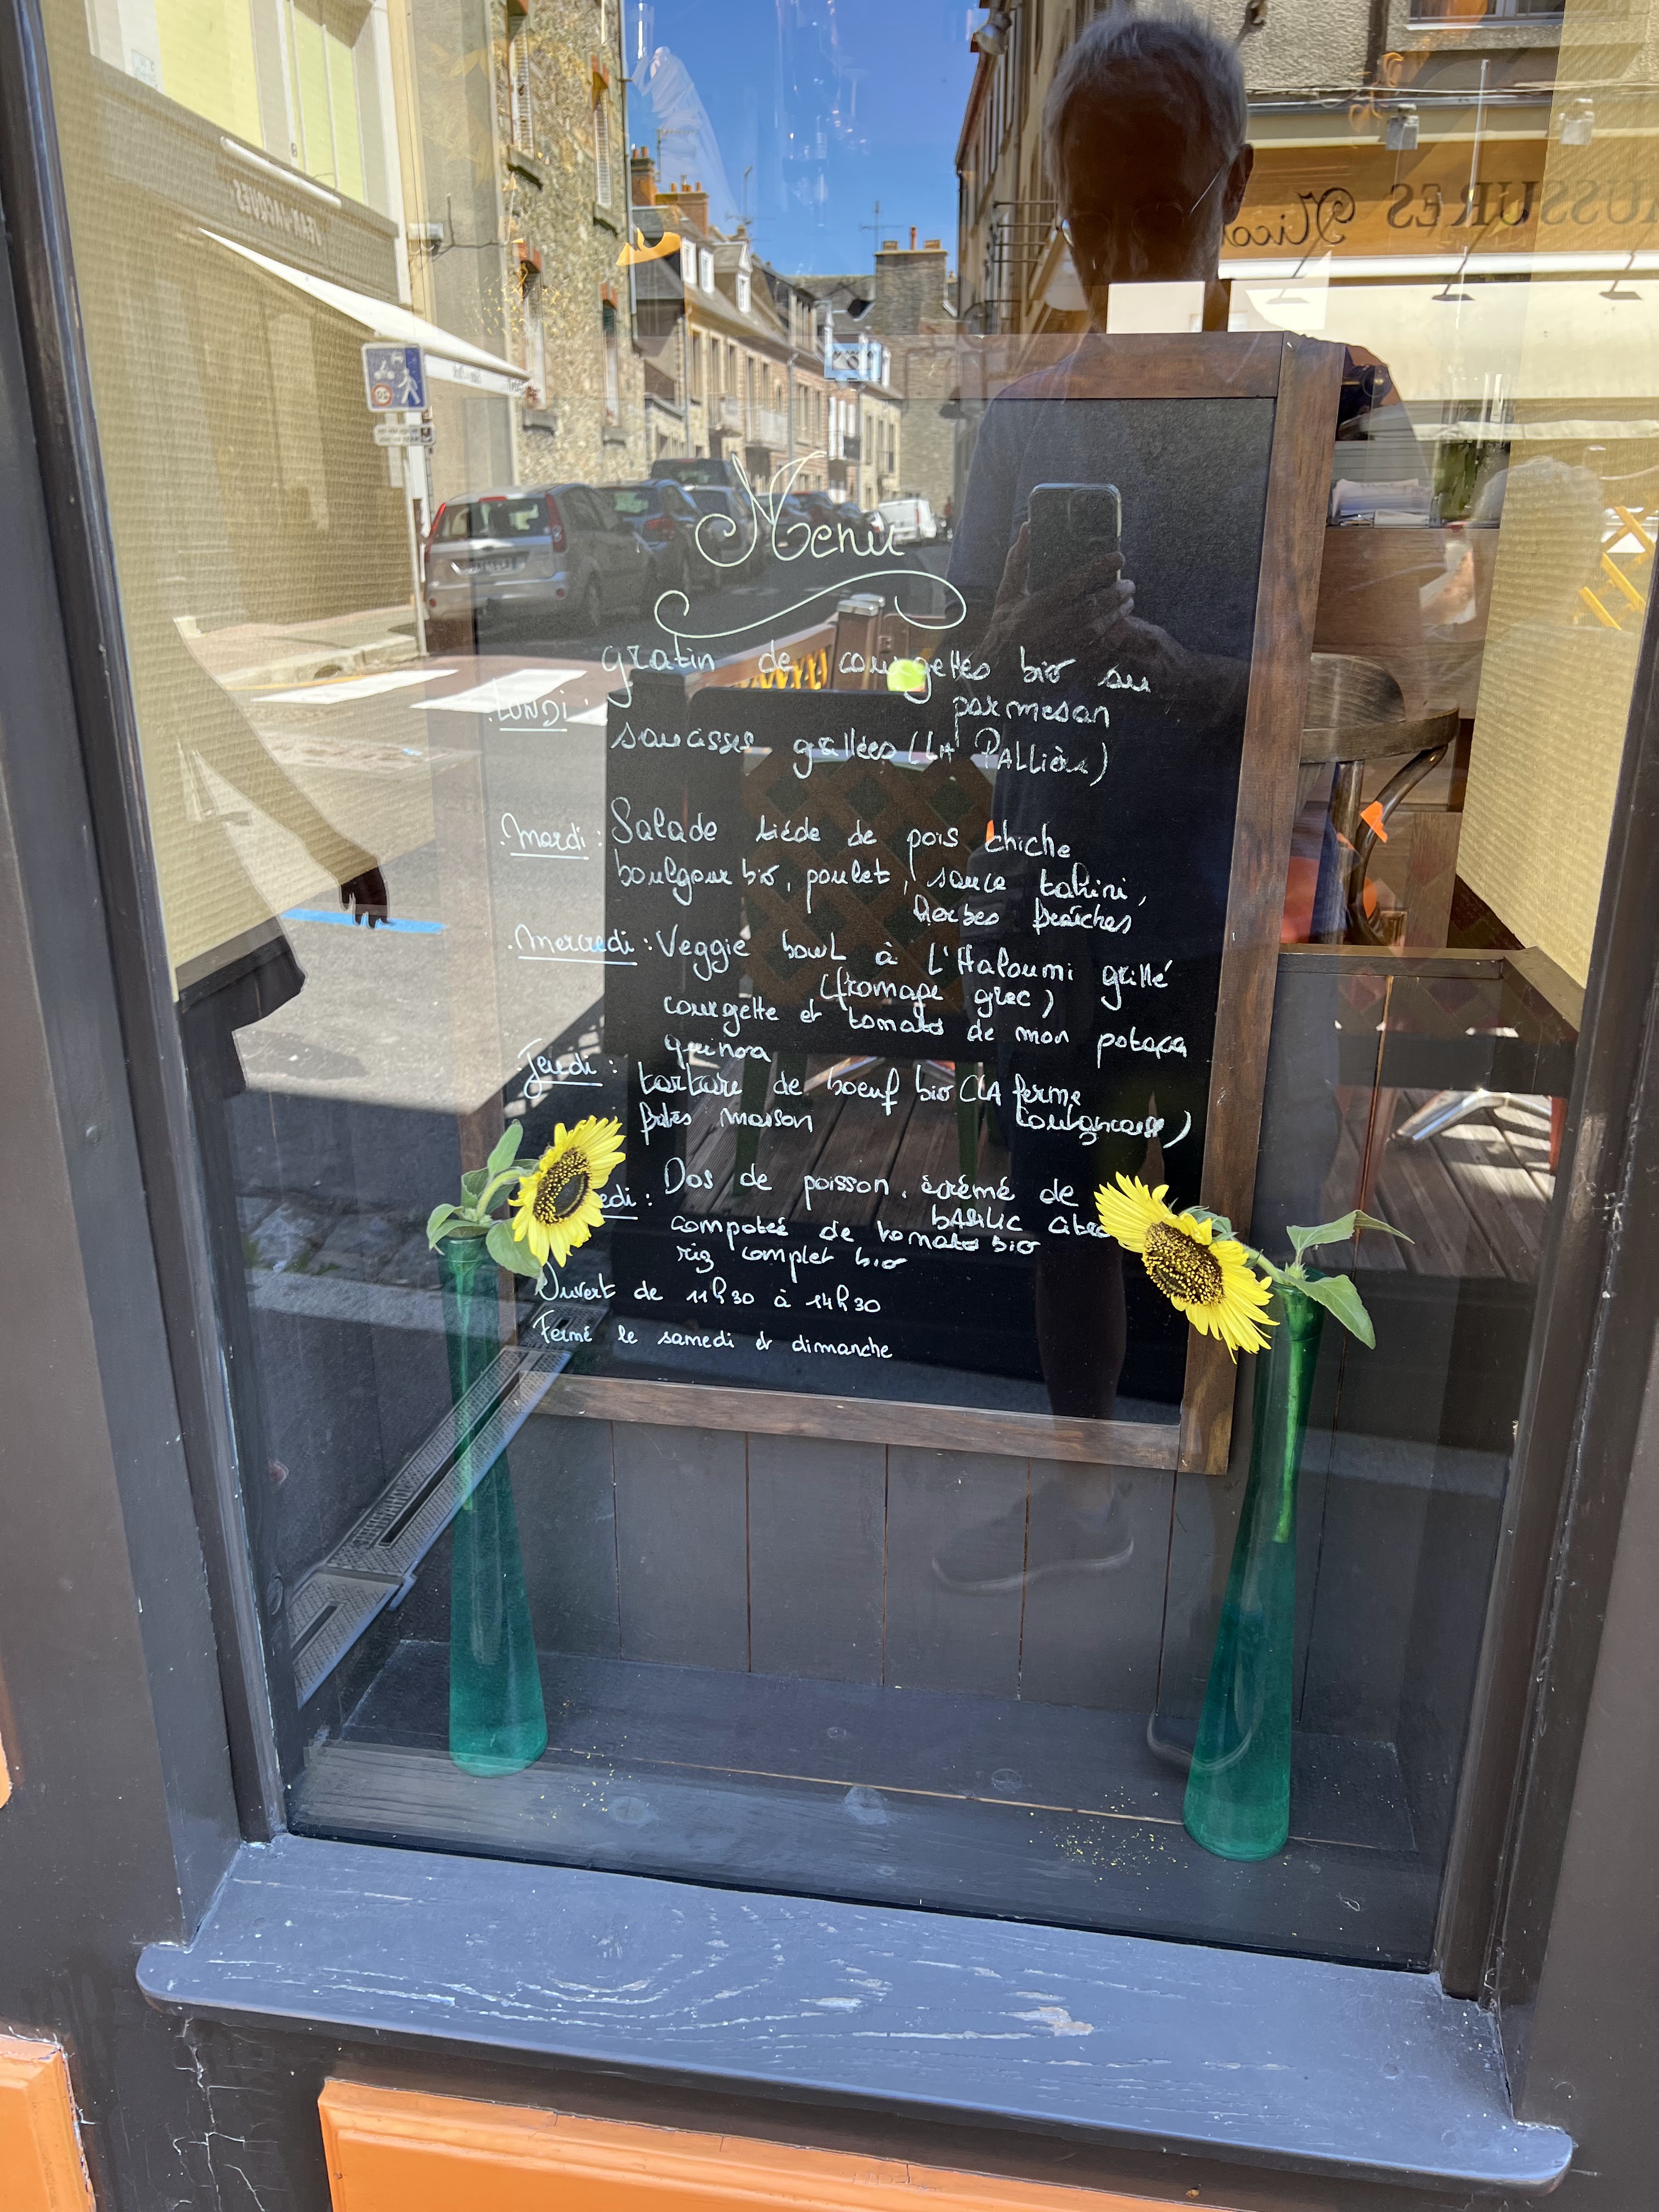 JEAN-JACQUES
USSURES Nico
Menu
gratin de courgettes bio au
.LUNDI :
parmesan
saucisses grillées (LA PALLière)
.Mardi : Salade tiède de pois chiche
boulgour bio, poulet, sauce tahini,
herbes fraîches
.Mercredi : Veggie bowl à L'Haloumi grillé
(fromage grec)
courgette et tomate de mon potaga
quinoa
Jeudi :
tartare de boeuf bio (LA ferme
frites maison coutançaise)
edi : Dos de poisson, écrémé de
bASilic citro
compotée de tomate bio
riz complet bio
Ouvert de 11h30 à 14h30
Fermé le samedi et dimanche